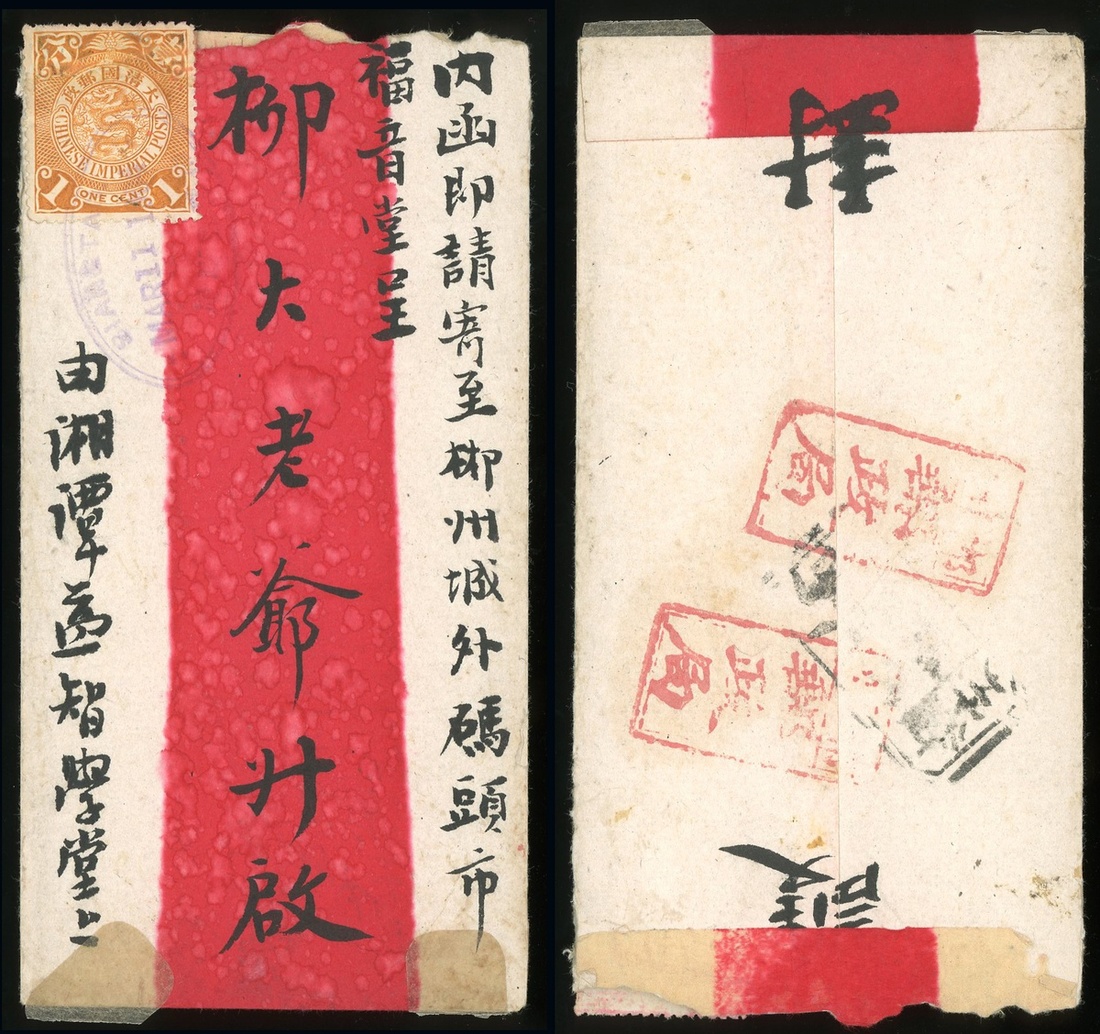 內函即請寄至郴州城外碼頭市
福音堂呈
柳大老爺升啟
由湘潭益智學堂上
分 壹
大清國郵政
CHINESE IMPERIAL POST
1 ONE CENT 1
SIANGTA
MAR 11
封
郵政局
郵政局
護